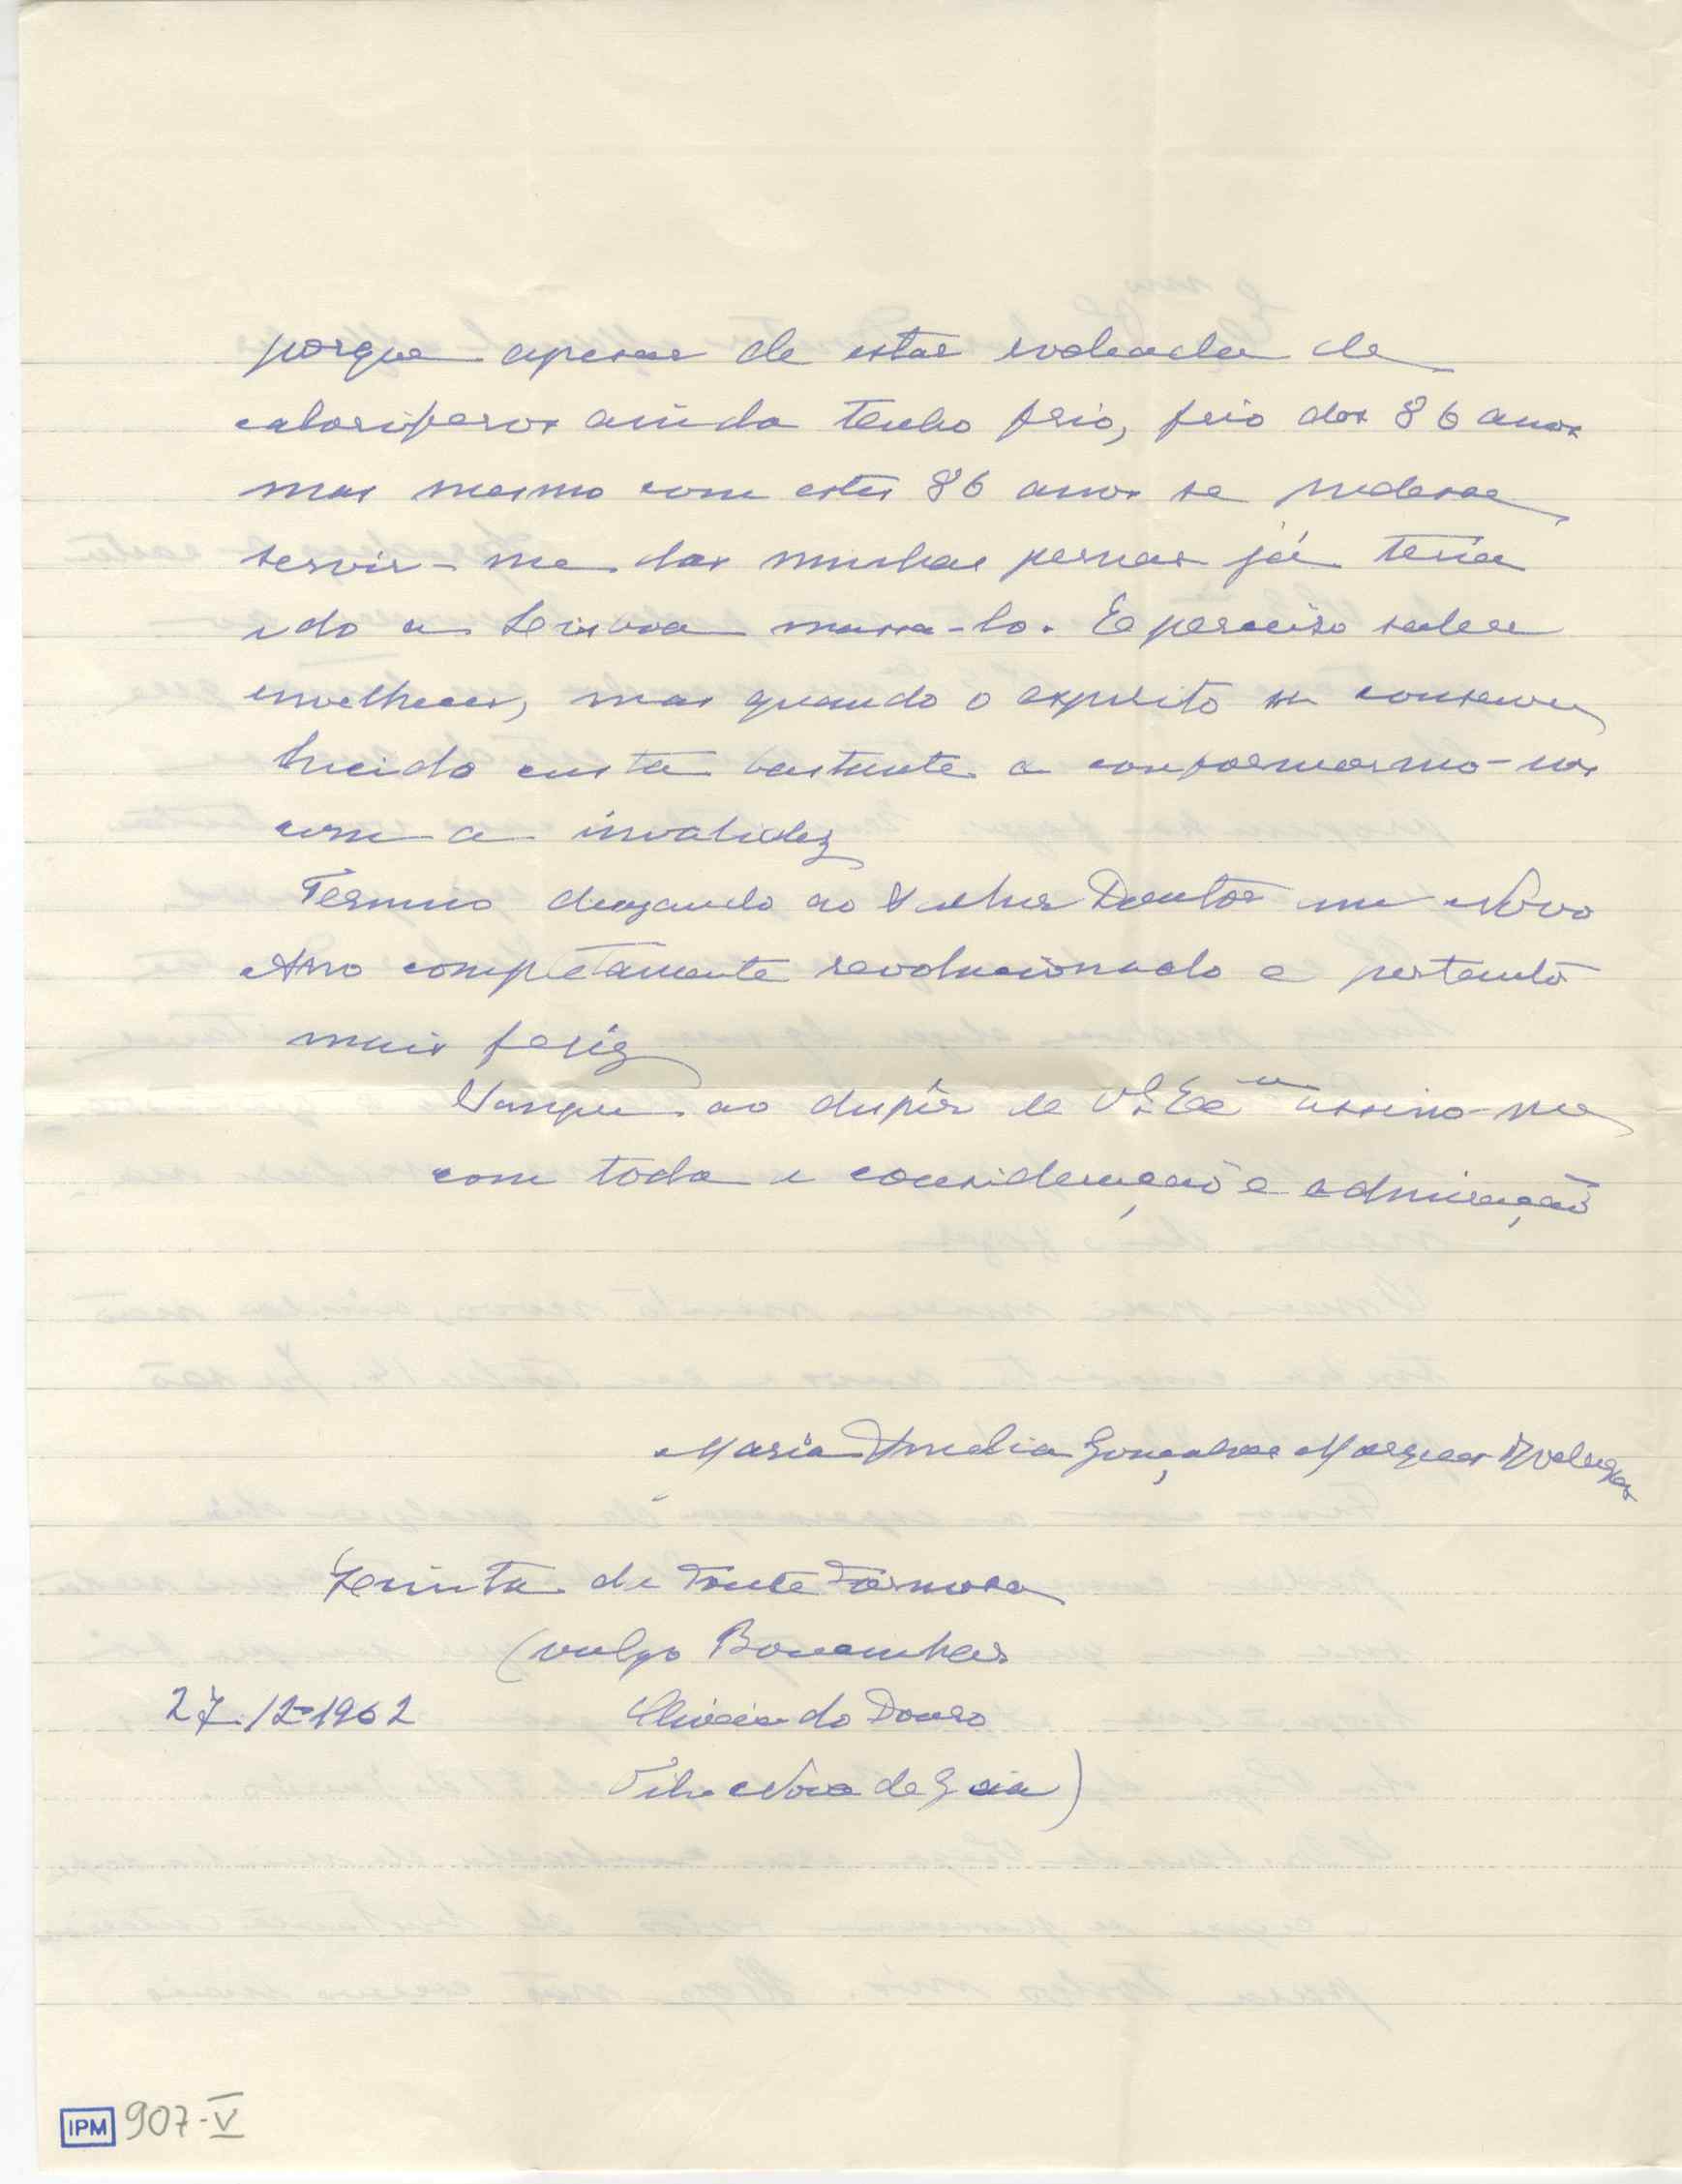 porque apesar de estar rodeada de
caloriferos ainda tenho frio, frio dos 86 anos
mas mesmo com estes 86 anos se podesse
servir-me das minhas pernas já teria
ido a Lisboa massa-lo. É perciso saber
envelhecer, mas quando o espirito se conserva
lucido custa bastante a conformarmo-nos
com a invalidez
Termino desejando ao Senhor Doutor um Novo
Ano completamente revolucionado e portanto
mais feliz
Sempre ao dispôr de V.ª Ex.ª assino-me
com toda a consideração e admiração
Maria Amelia Gonçalves Marques
Quinta da Fonte Formosa
(vulgo
27-12-1962 Oliveira do Douro
Vila Nova de Gaia)
IPM 907-V